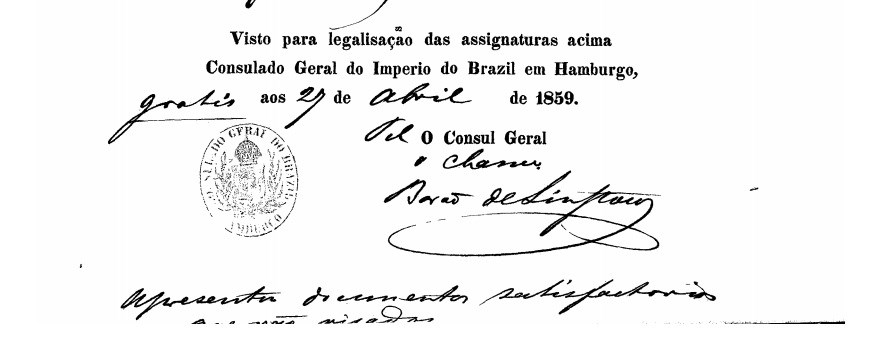 Visto para legalisação das assignaturas acima
Consulado Geral do Imperio do Brazil em Hamburgo,
gratis aos 27 de Abril de 1859.
Pel O Consul Geral
o
Barão de
CONSUL. DO GERAL DO BRAZIL
HAMBURGO
Apresentou documentos satisfactorios
que não visados